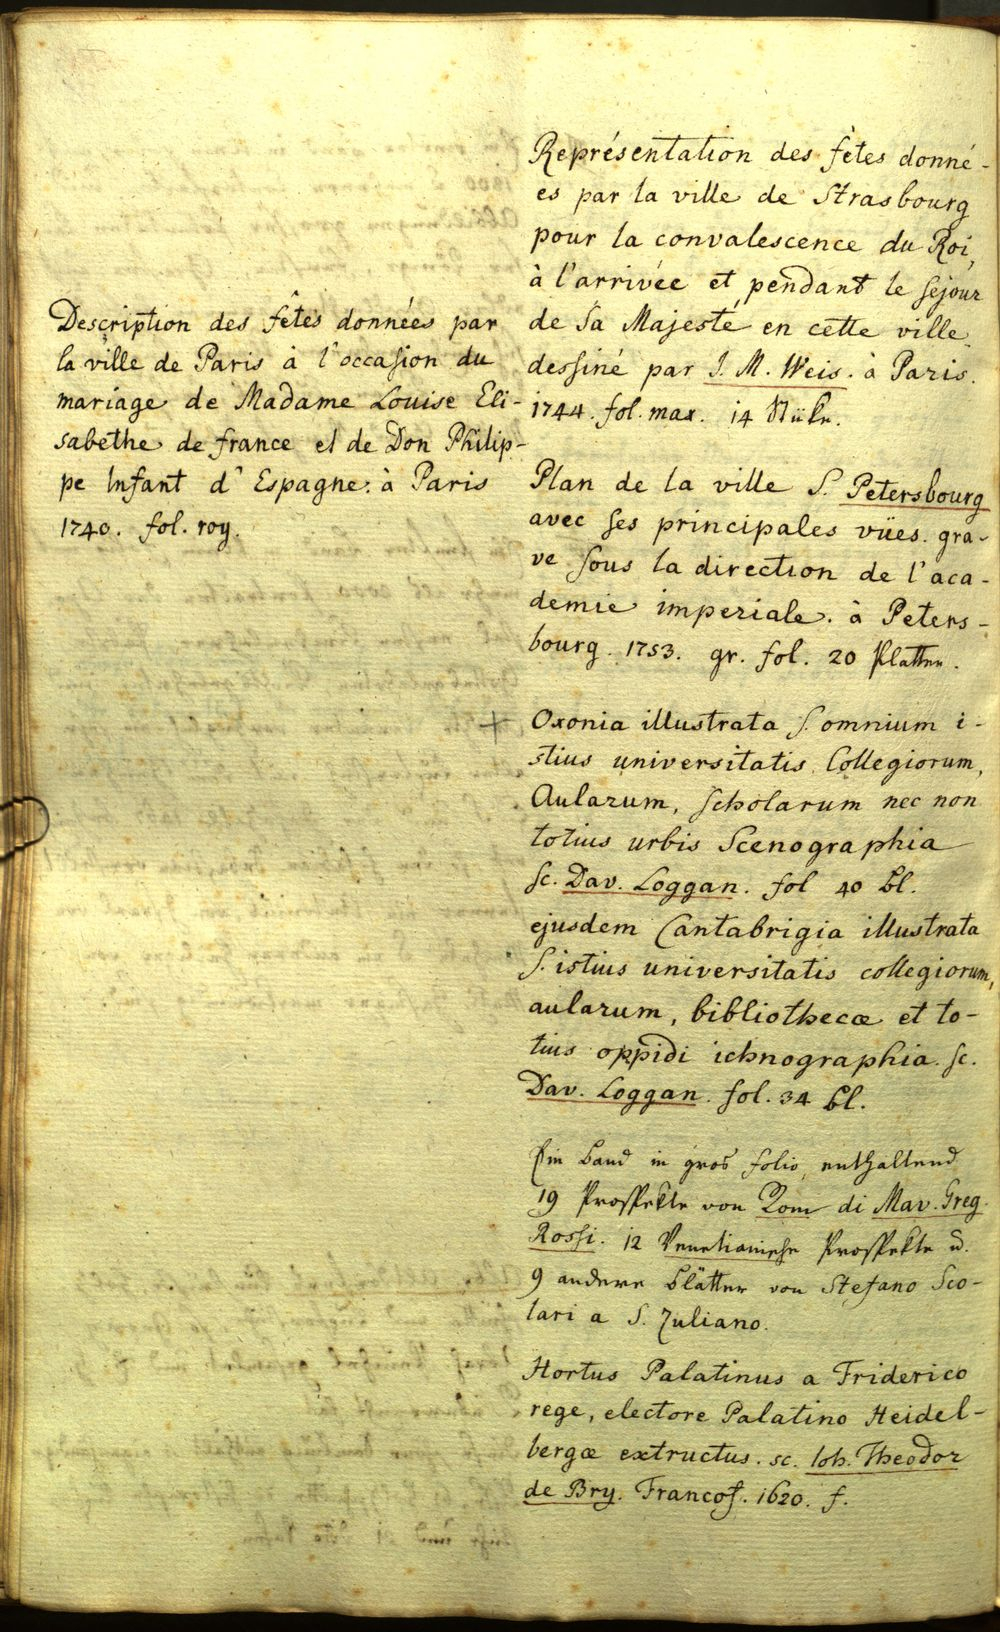 Description des fêtes données par
la ville de Paris à l'occasion du
mariage de Madame Louise Eli-
sabethe de france et de Don Philip-
pe Infant d'Espagne. à Paris
1740. fol. roy.
Représentation des fêtes donné-
es par la ville de Strasbourg
pour la convalescence du Roi,
à l'arrivée et pendant le sejour
de Sa Majesté en cette ville.
dessiné par J. M. Weis. à Paris.
1744. fol. max. 14 Stüke.
Plan de la ville S. Petersbourg
avec ses principales vües. gra-
ve sous la direction de l'aca-
demie imperiale. à Peters-
bourg. 1753. gr. fol. 20 Platten.
+ Oxonia illustrata s. omnium i-
stius universitatis Collegiorum,
Aularum, Scholarum nec non
totius urbis Scenographia
sc. Dav. Loggan. fol 40 bl.
ejusdem Cantabrigia illustrata
s. istius universitatis collegiorum,
aularum, bibliothecæ et to-
tius oppidi ichnographia. sc.
Dav. Loggan. fol. 34 bl.
Ein Band in gros folio, enthaltend
19 Prospekte von Rom di Mav. Greg.
Rossi. 12 Venetianische Prospekte u.
9 andere Blätter von Stefano Sco-
lari a S. Zuliano.
Hortus Palatinus a Friderico
rege, electore Palatino Heidel-
bergæ extructus. sc. Ioh. Theodor
de Bry. Francof. 1620. f.